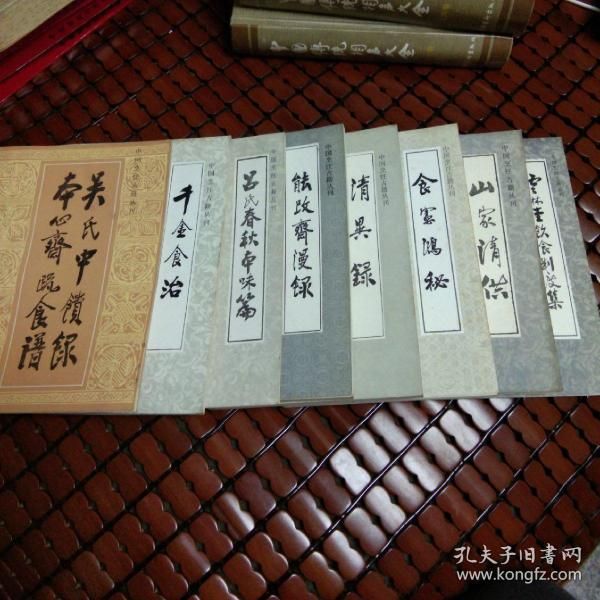 中国烹饪古籍丛刊
吴氏中馈录
本心斋疏食谱
中国烹饪古籍丛刊
千金食治
中国烹饪古籍丛刊
吕氏春秋本味篇
中国烹饪古籍丛刊
能改斋漫录
中国烹饪古籍丛刊
清异录
中国烹饪古籍丛刊
食宪鸿秘
中国烹饪古籍丛刊
山家清供
云林堂饮食制度集
孔夫子旧书网
www.kongfz.com